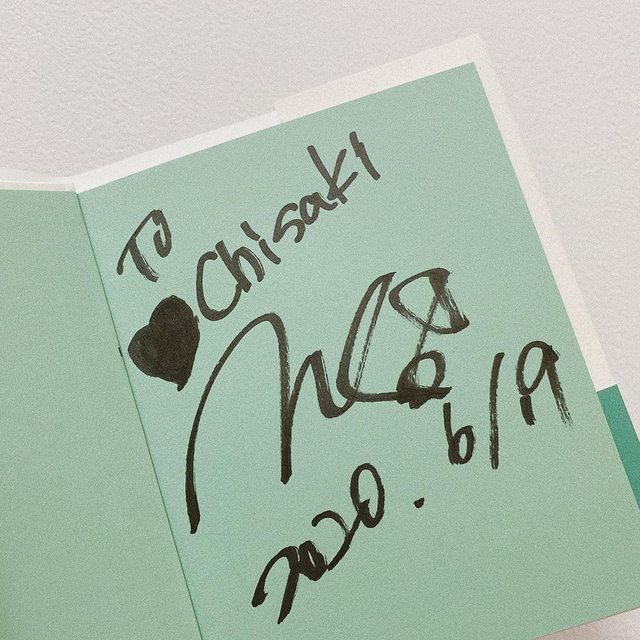 To
♥Chisaki
2020. 6/19